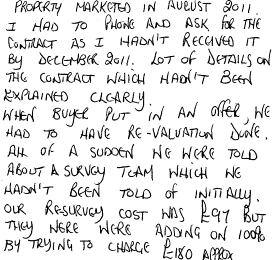 PROPERTY MARKETED IN AUGUST 2011.
I HAD TO PHONE AND ASK FOR THE
CONTRACT AS I HADN'T RECEIVED IT
BY DECEMBER 2011. LOT OF DETAILS ON
THE CONTRACT WHICH HADN'T BEEN
EXPLAINED CLEARLY.
WHEN BUYER PUT IN AN OFFER, WE
HAD TO HAVE RE-VALUATION DONE.
ALL OF A SUDDEN WE WERE TOLD
ABOUT A SURVEY TEAM WHICH WE
HADN'T BEEN TOLD OF INITIALLY.
OUR RESURVEY COST WAS £97 BUT
THEY WERE WERE ADDING ON 100%
BY TRYING TO CHARGE £180 APPROX